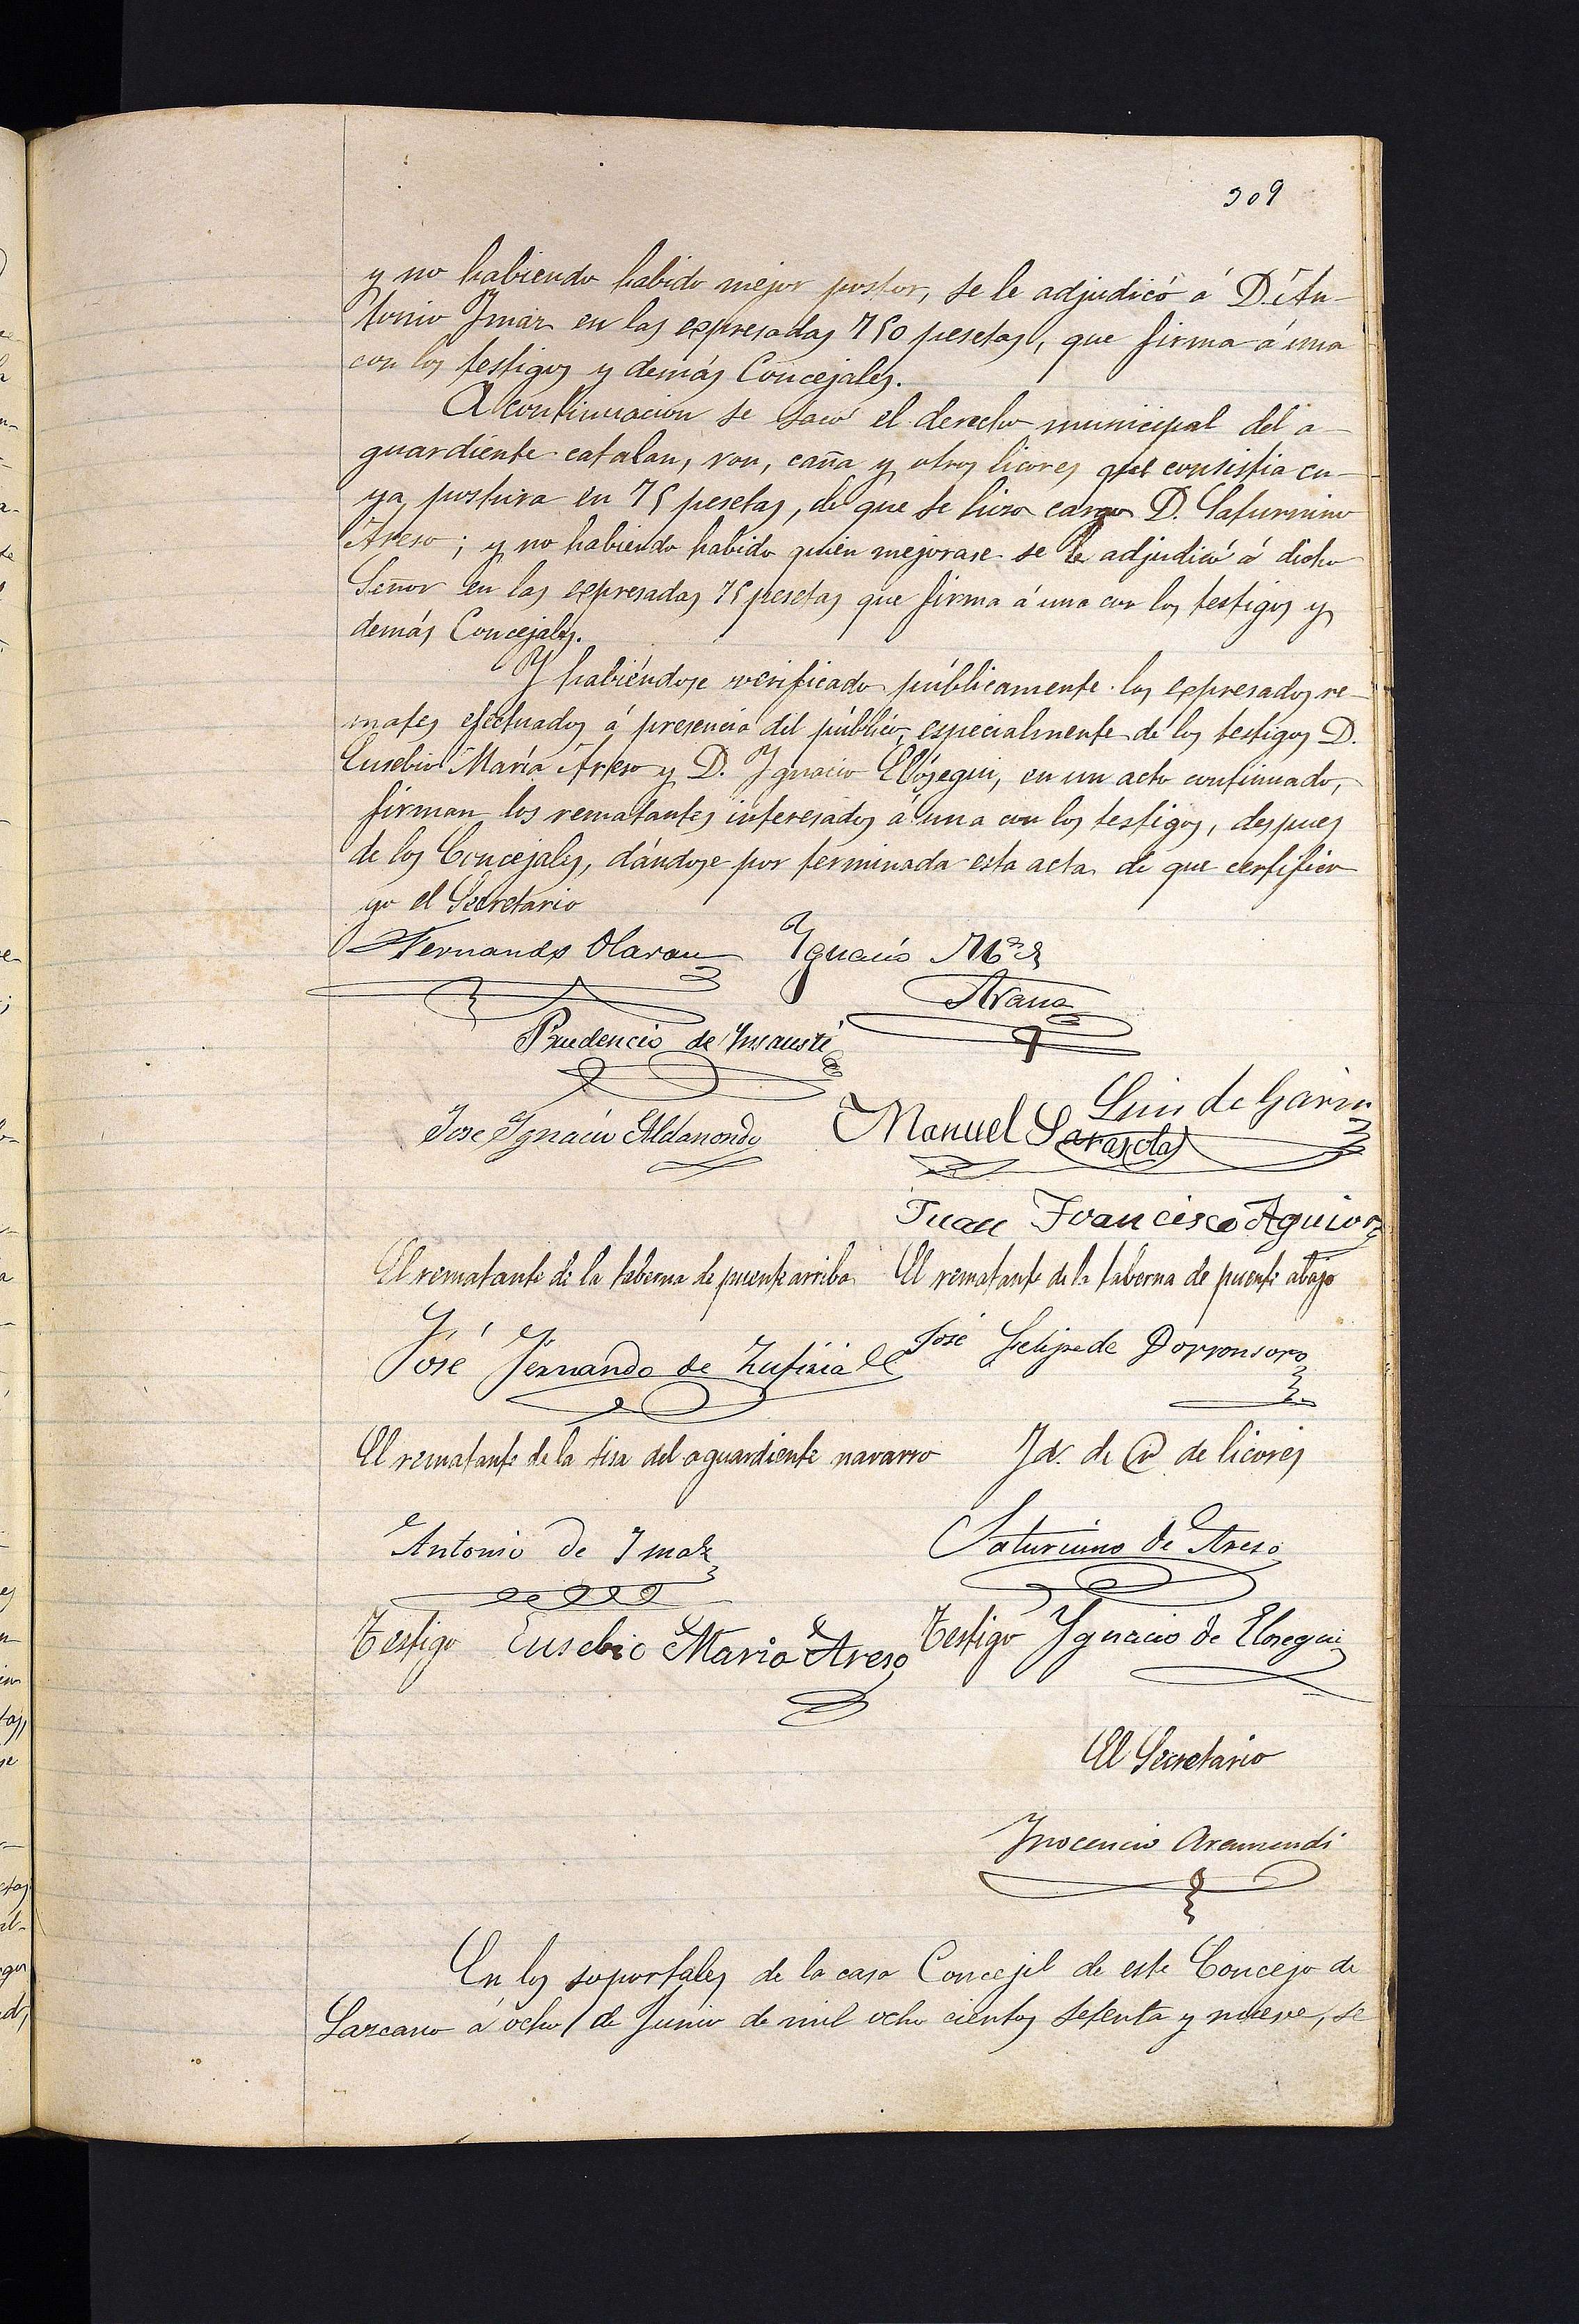 309
y no habiendo habido mejor postor, se le adjudicó á D. An-
tonio Imaz en las expresadas 750 pesetas, que firma á una
con los testigos y demás Concejales.
A continuacion se sacó el derecho municipal del a-
guardiente catalan, ron, caña y otros licores que consistia cu-
ya postura en 75 pesetas, de que se hizo cargo D. Saturnino
Areso; y no habiendo habido quien mejorase se le adjudicó á dicho
Señor en las expresadas 75 pesetas que firma á una con los testigos y
demás Concejales.
Y habiéndose verificado públicamente los expresados re-
mates efectuados á presencia del público, especialmente de los testigos D.
Eusebio María Areso y D. Ignacio Elósegui, en un acto continuado,
firman los rematantes interesados á una con los testigos, despues
de los Concejales, dándose por terminada esta acta de que certifico
yo el Secretario
Fernando Olaran Ignacio Mª
Arana
Prudencio de Insausti
Luis de Garin
Jose Ignacio Aldanondo Manuel Sarasola
Juan Francisco Aguirre
El rematante de la taberna de puente arriba El rematante de la taberna de puente abajo
José Fernando de Zufiria José Felipe de Dorronsoro
El rematante de la sisa del aguardiente navarro Id. de id de licores
Antonio de Imaz Saturnino de Areso
Testigo Eusebio Maria Areso Testigo Ygnacio de Elosegui
El Secretario
Inocencio Aramendi
En los soportales de la casa Concejil de este Concejo de
Lazcano á ocho de Junio de mil ocho cientos setenta y nueve, se